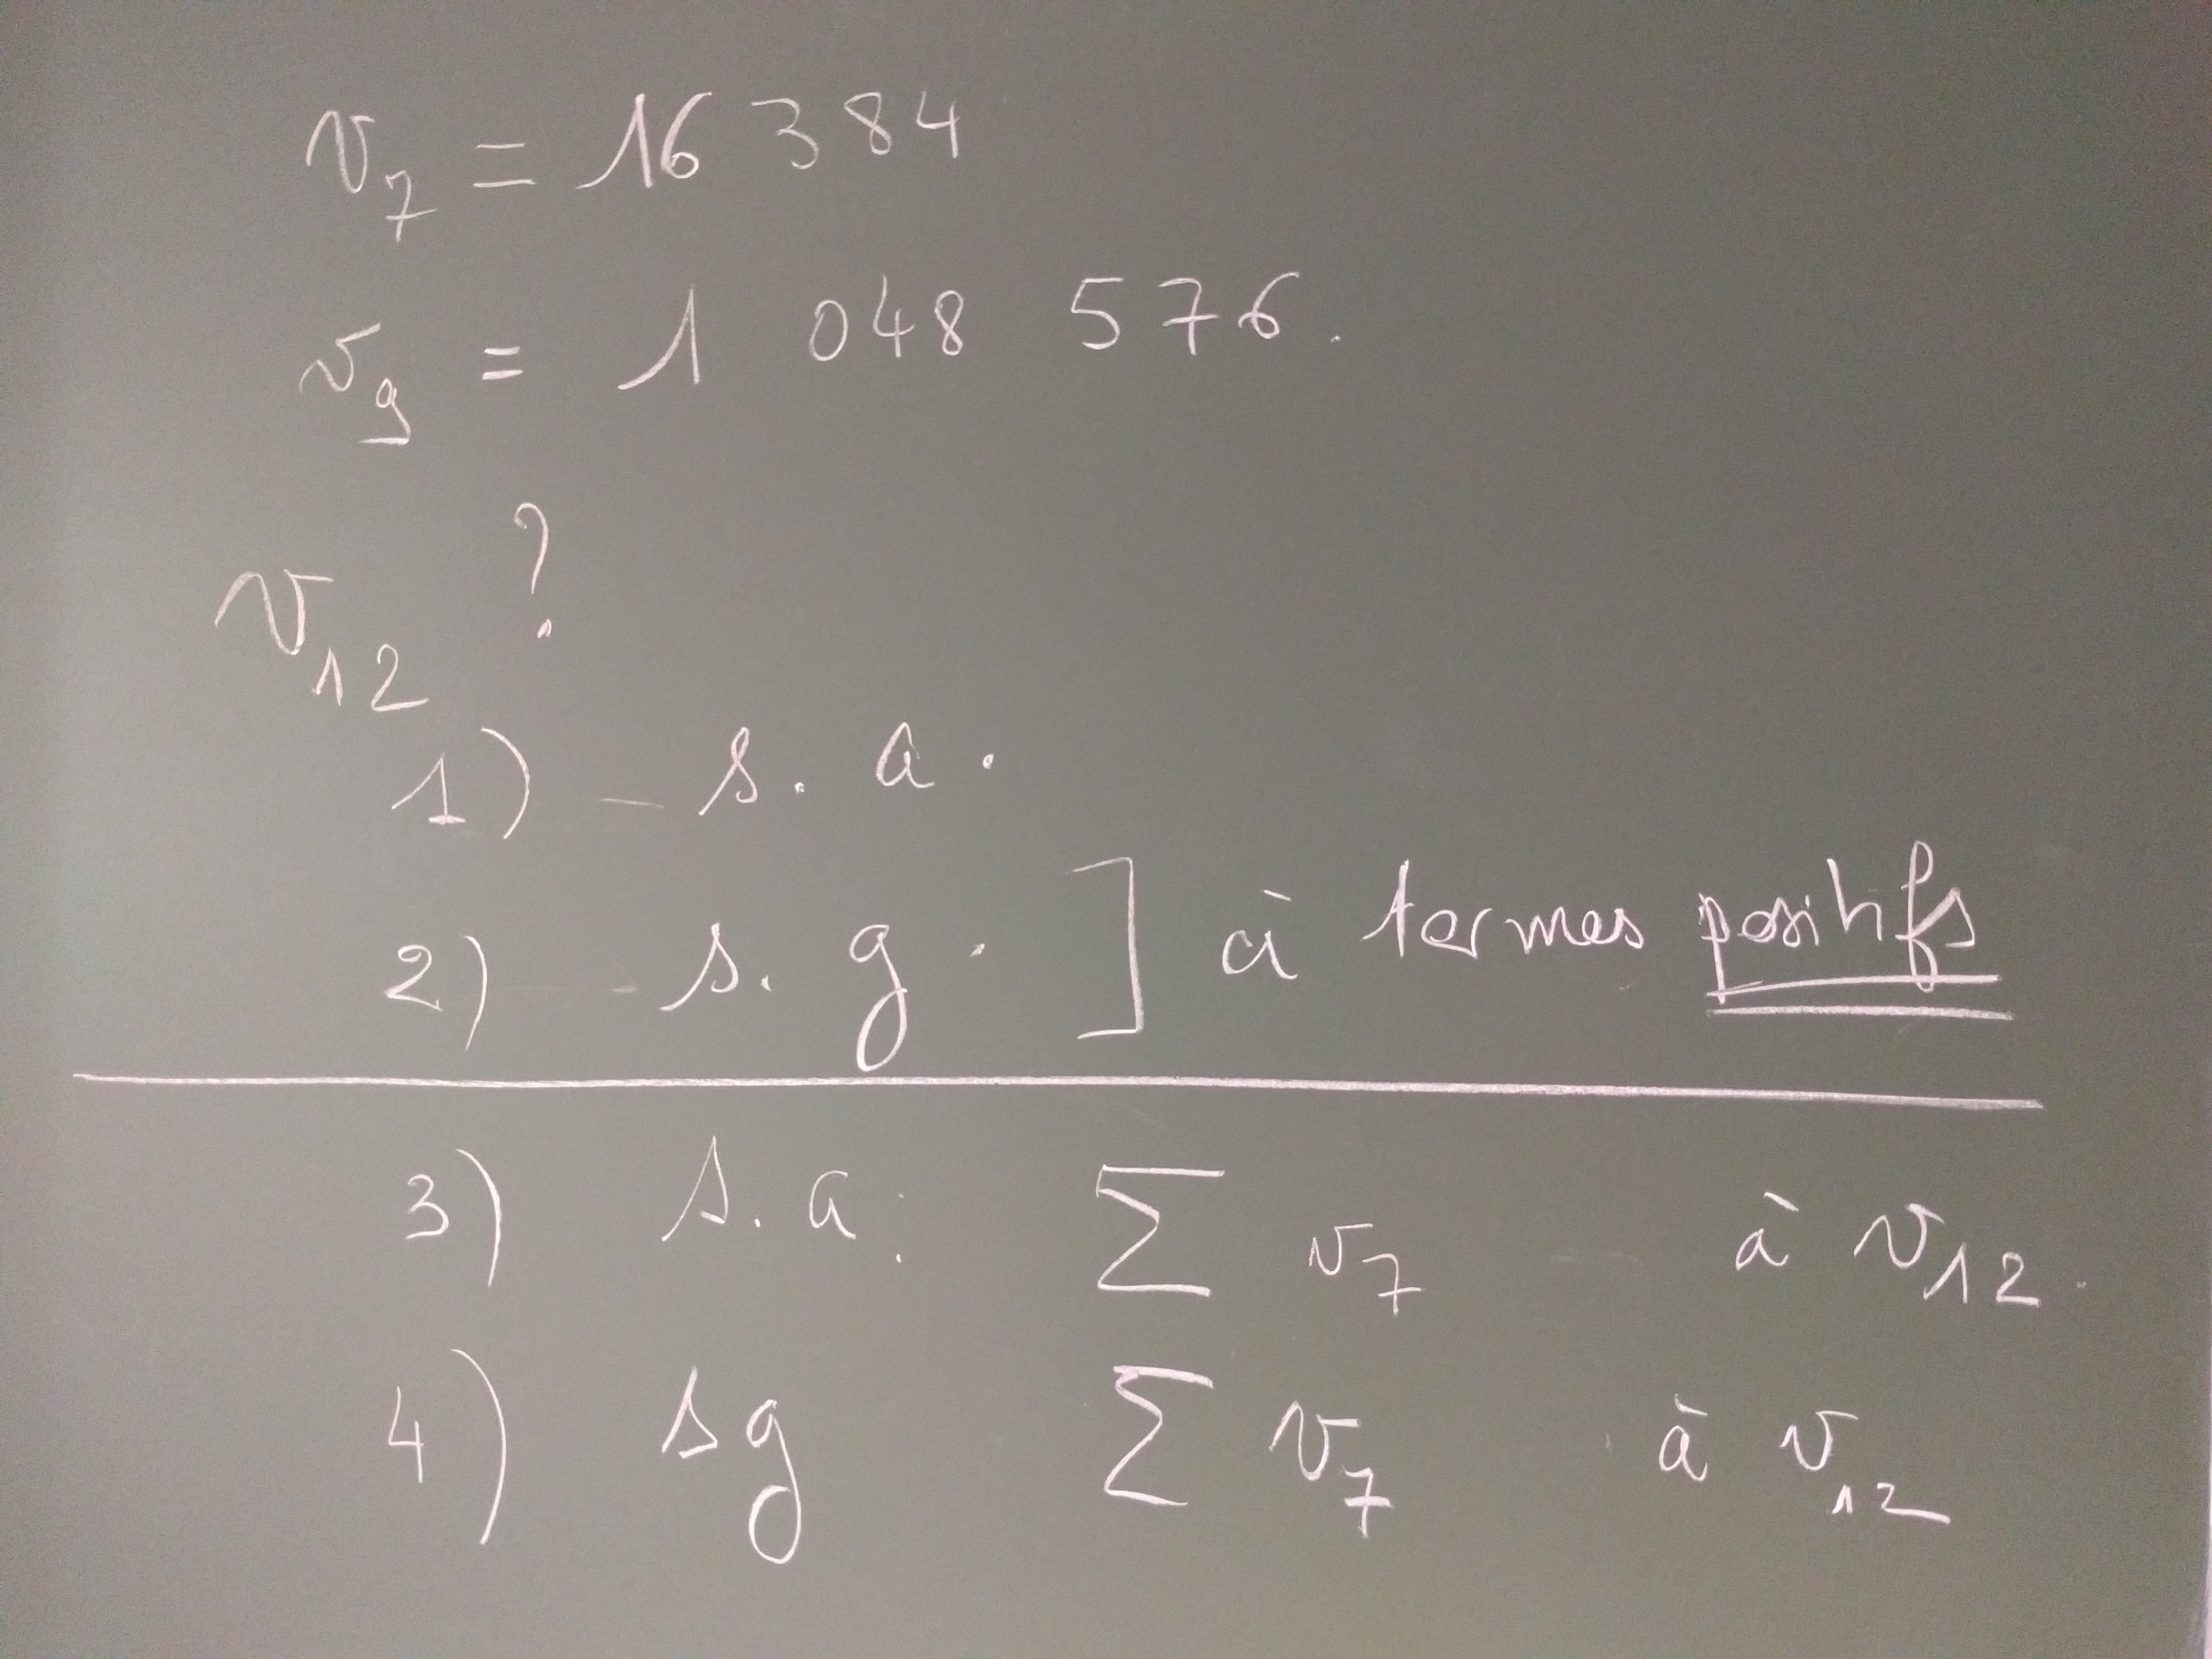 v₇ = 16 384
v₉ = 1 048 576.
v₁₂ ?
1) - s. a.
2) - s. g. ] à termes positifs
3) s. a. Σ v₇ à v₁₂.
4) sg Σ v₇ à v₁₂